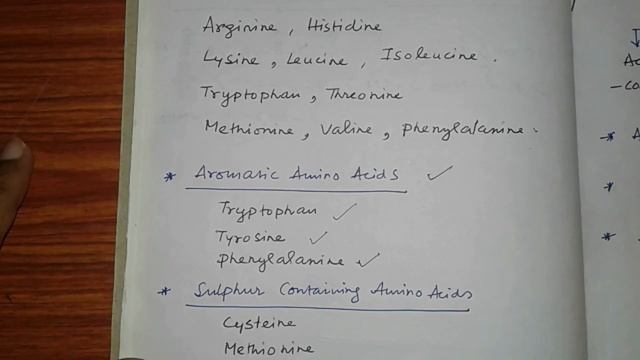 Arginine, Histidine
Lysine, Leucine, Isoleucine.
Tryptophan, Threonine
Methionine, Valine, Phenylalanine.
* Aromatic Amino Acids ✓
Tryptophan ✓
Tyrosine ✓
Phenylalanine ✓
* Sulphur Containing Amino Acids
Cysteine
Methionine